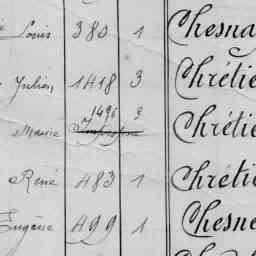 Louis 380 1 Chesna
Julien 1418 3 Chrétie
1496 3
Marie Chrétie
René 483 1 Chrétie
Eugène 499 1 Chesne